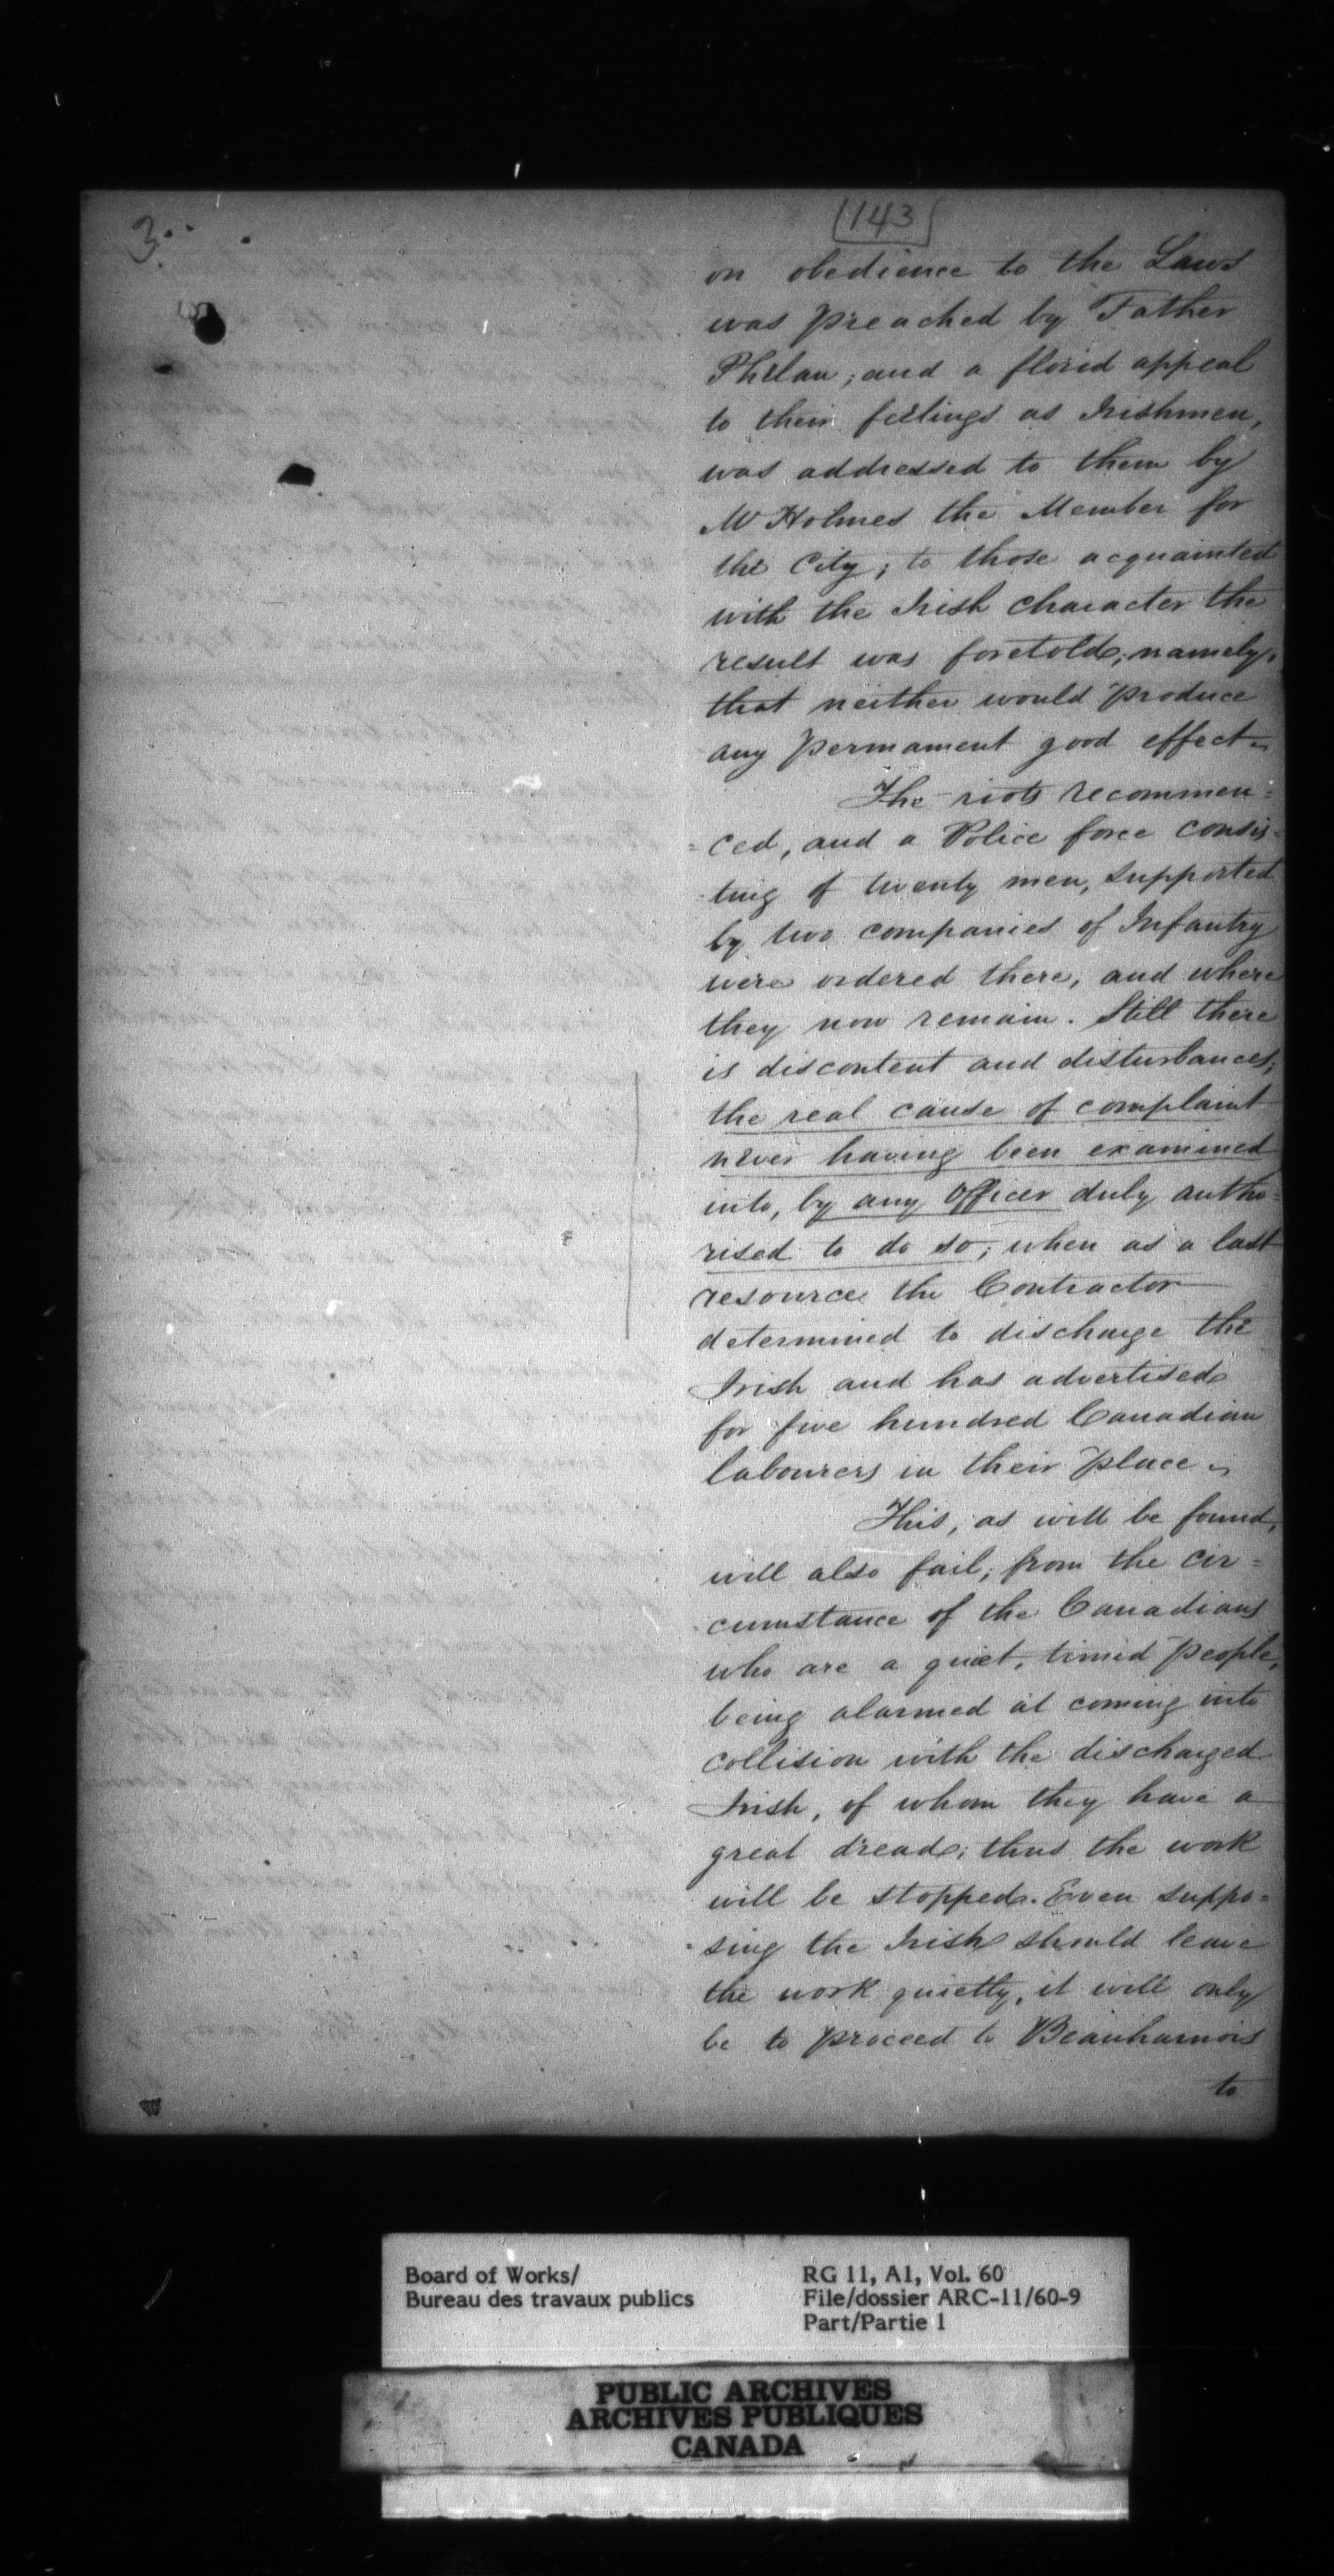 3
(143)
on obedience to the Laws
was preached by Father
Phelan; and a florid appeal
to their feelings as Irishmen,
was addressed to them by
Mr Holmes the Member for
the City; to those acquainted
with the Irish character the
result was foretold; namely,
that neither would produce
any permament good effect.
The riots recommen=
=ced, and a Police force consis=
ting of twenty men, supported
by two companies of Infantry
were ordered there, and where
they now remain. Still there
is discontent and disturbances;
the real cause of complaint
never having been examined
into, by any Officer duly autho=
rised to do so; when as a last
resource the Contractor
determined to discharge the
Irish and has advertised
for five hundred Canadian
labourers in their place.
This, as will be found,
will also fail; from the cir=
cumstance of the Canadians
who are a quiet, timid people,
being alarmed at coming into
collision with the discharged
Irish, of whom they have a
great dread; thus the work
will be stopped. Even suppo=
=sing the Irish should leave
the work quietly, it will only
be to proceed to Beauharnois
to
Board of Works/
Bureau des travaux publics
RG 11, A1, Vol. 60
File/dossier ARC-11/60-9
Part/Partie 1
PUBLIC ARCHIVES
ARCHIVES PUBLIQUES
CANADA